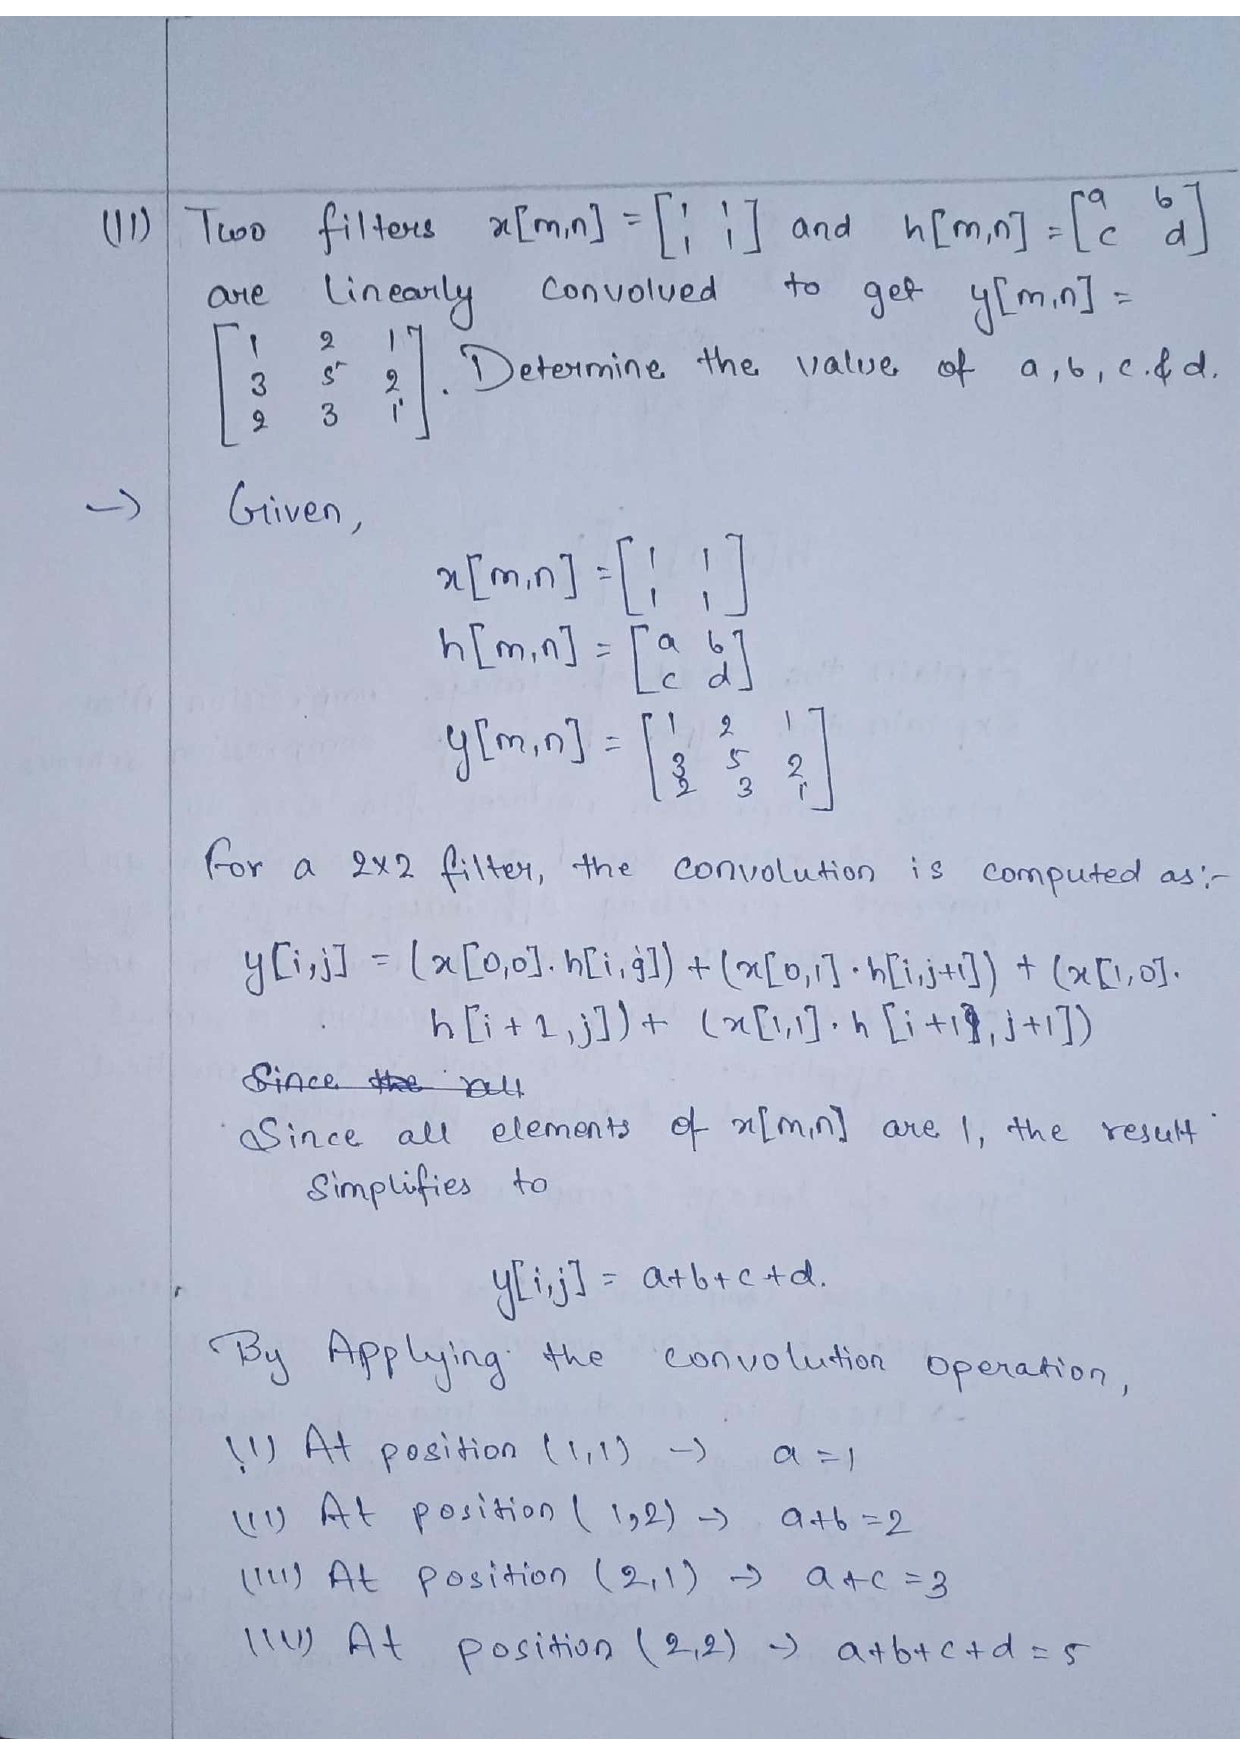 (11) Two filters x[m,n] = [1 1
1 1] and h[m,n] = [a b
c d]
are linearly convolved to get y[m,n] =
[1 2 1
3 5 2
2 3 1]. Determine the value of a, b, c & d.
→ Given,
x[m,n] = [1 1
1 1]
h[m,n] = [a b
c d]
y[m,n] = [1 2 1
3 5 2
2 3 1]
For a 2x2 filter, the convolution is computed as:-
y[i,j] = (x[0,0]. h[i,j]) + (x[0,1]. h[i,j+1]) + (x[1,0].
h[i+1,j]) + (x[1,1]. h[i+1, j+1])
Since the
Since all elements of x[m,n] are 1, the result
simplifies to
y[i,j] = a+b+c+d.
By Applying the convolution operation,
(i) At position (1,1) → a=1
(ii) At position (1,2) → a+b=2
(iii) At position (2,1) → a+c=3
(iv) At position (2,2) → a+b+c+d=5